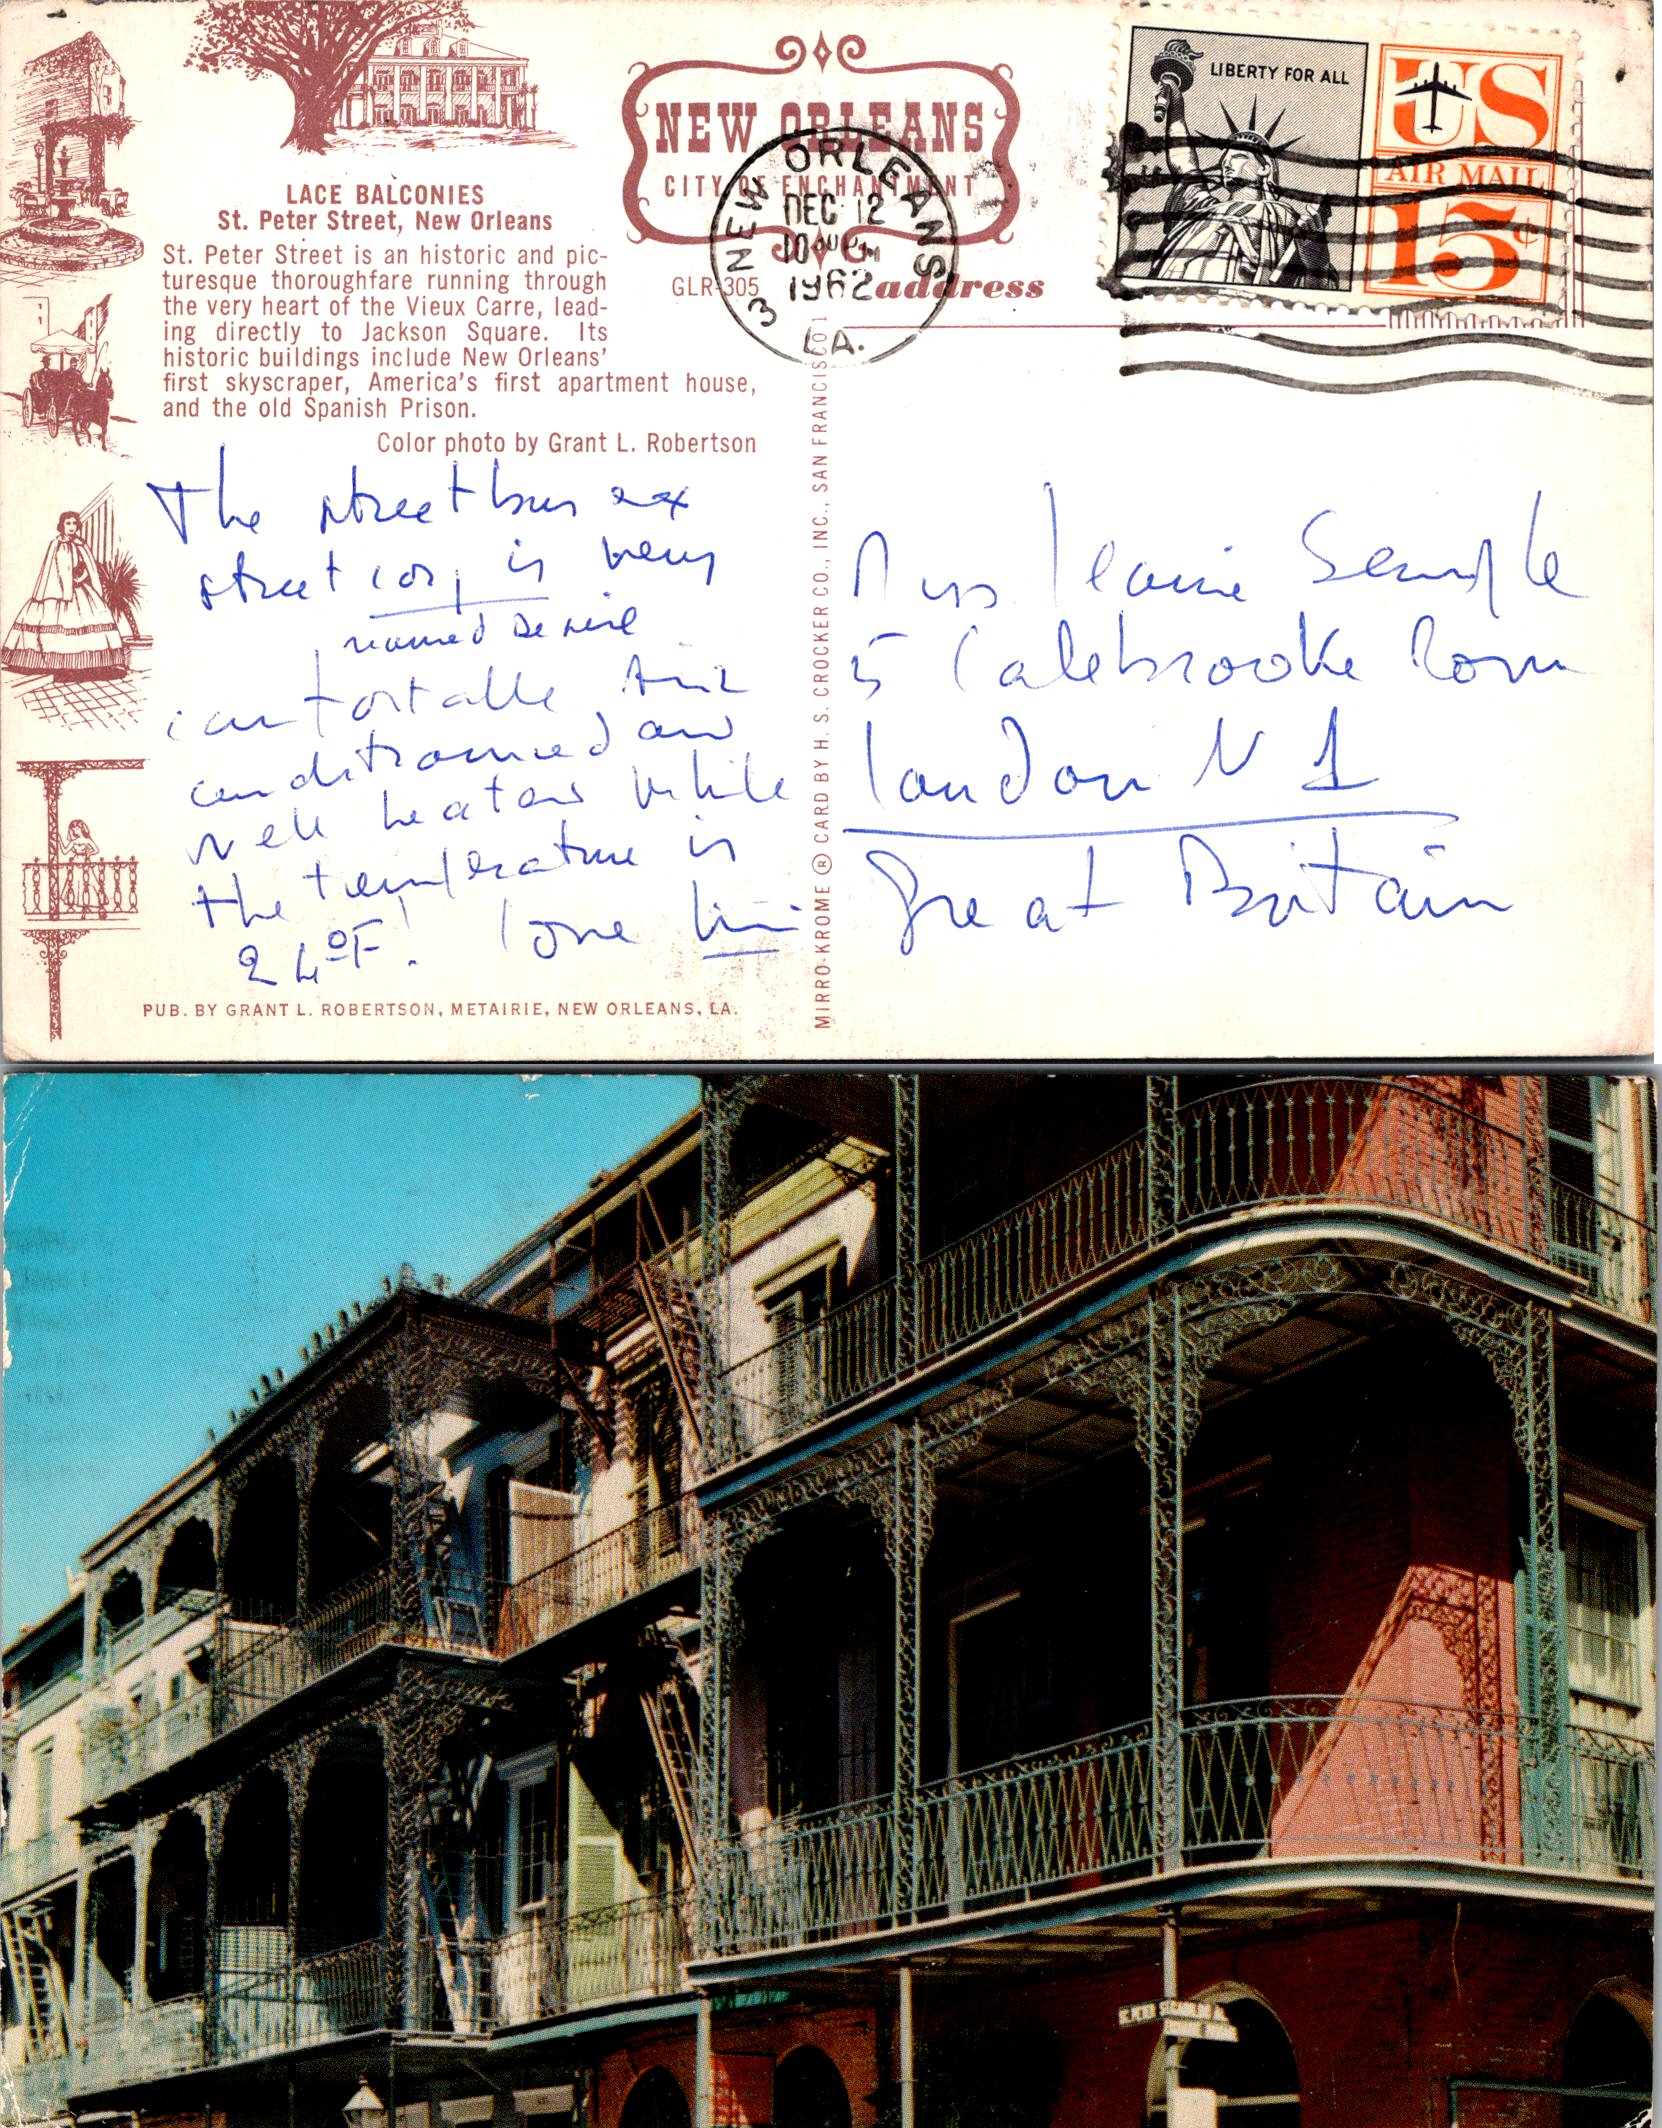 LACE BALCONIES
St. Peter Street, New Orleans
St. Peter Street is an historic and pic-
turesque thoroughfare running through
the very heart of the Vieux Carre, lead-
ing directly to Jackson Square. Its
historic buildings include New Orleans'
first skyscraper, America's first apartment house,
and the old Spanish Prison.
Color photo by Grant L. Robertson
NEW ORLEANS
CITY OF ENCHANTMENT
GLR-305
address
NEW ORLEANS
DEC 12
1962
3 LA.
LIBERTY FOR ALL
US
AIR MAIL
15¢
The streetbus ex
streetcar, is very
named Desire
comfortable Air
conditioned and
well heated while
the temperature is
24°F! Love
MIRRO-KROME ® CARD BY H. S. CROCKER CO., INC., SAN FRANCISCO 1
Miss Semple
5 Colebrooke
London N 1
Great Britain
PUB. BY GRANT L. ROBERTSON, METAIRIE, NEW ORLEANS, LA.